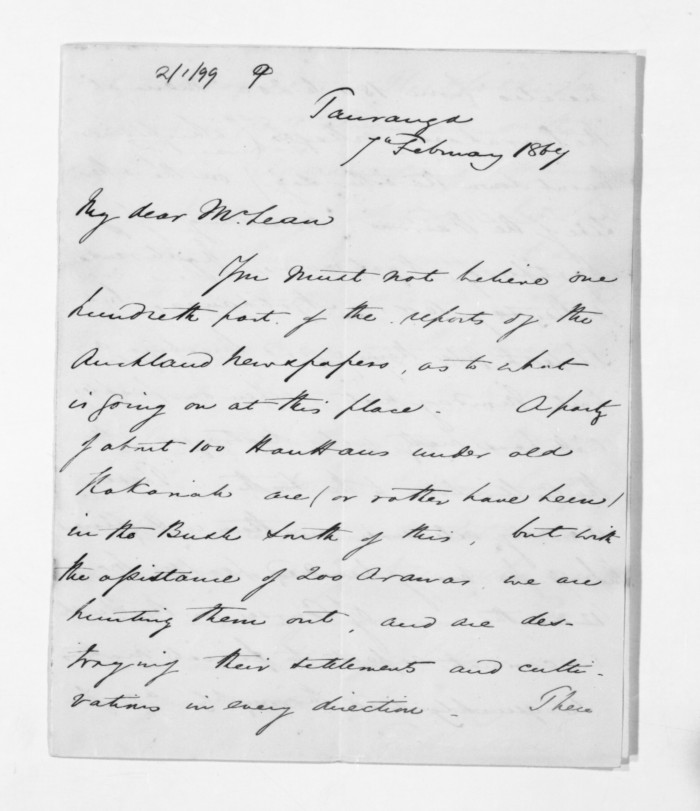 2/1/99 P
Tauranga
7th February 1867
My dear McLean
You must not believe one
hundreth part of the reports of the
Auckland Newspapers, as to what
is going on at this place. A party
of about 100 HauHaus under old
Hakariah are (or rather have been)
in the Bush South of this, but with
the assistance of 200 Arawas we are
hunting them out, and are des-
troying their settlements and culti-
vations in every direction - These